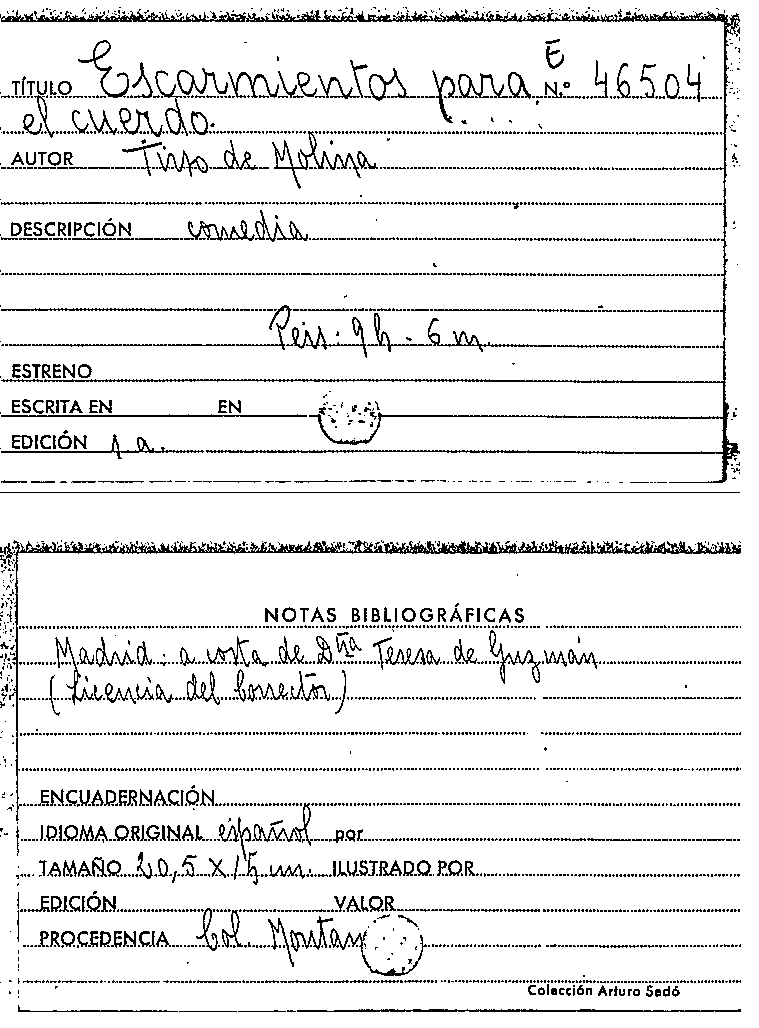 E
TÍTULO Escarmientos para N.º 46504
el cuerdo.
AUTOR Tirso de Molina
DESCRIPCIÓN comedia
Pers: 9 h - 6 m.
ESTRENO
ESCRITA EN EN
EDICIÓN s. a.
NOTAS BIBLIOGRÁFICAS
Madrid: a costa de Dña Teresa de Guzmán
(Licencia del Corrector)
ENCUADERNACIÓN
IDIOMA ORIGINAL español por
TAMAÑO 20,5 X 15 cm. ILUSTRADO POR
EDICIÓN VALOR
PROCEDENCIA Col.
Colección Arturo Sedó